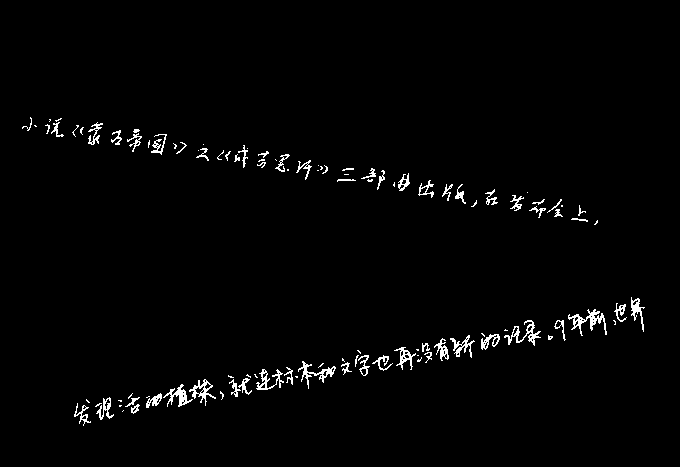 小说《蒙古帝国》之《成吉思汗》三部曲出版,在发布会上,
发现活的植株,就连标本和文字也再没有新的记录。9年前,世界